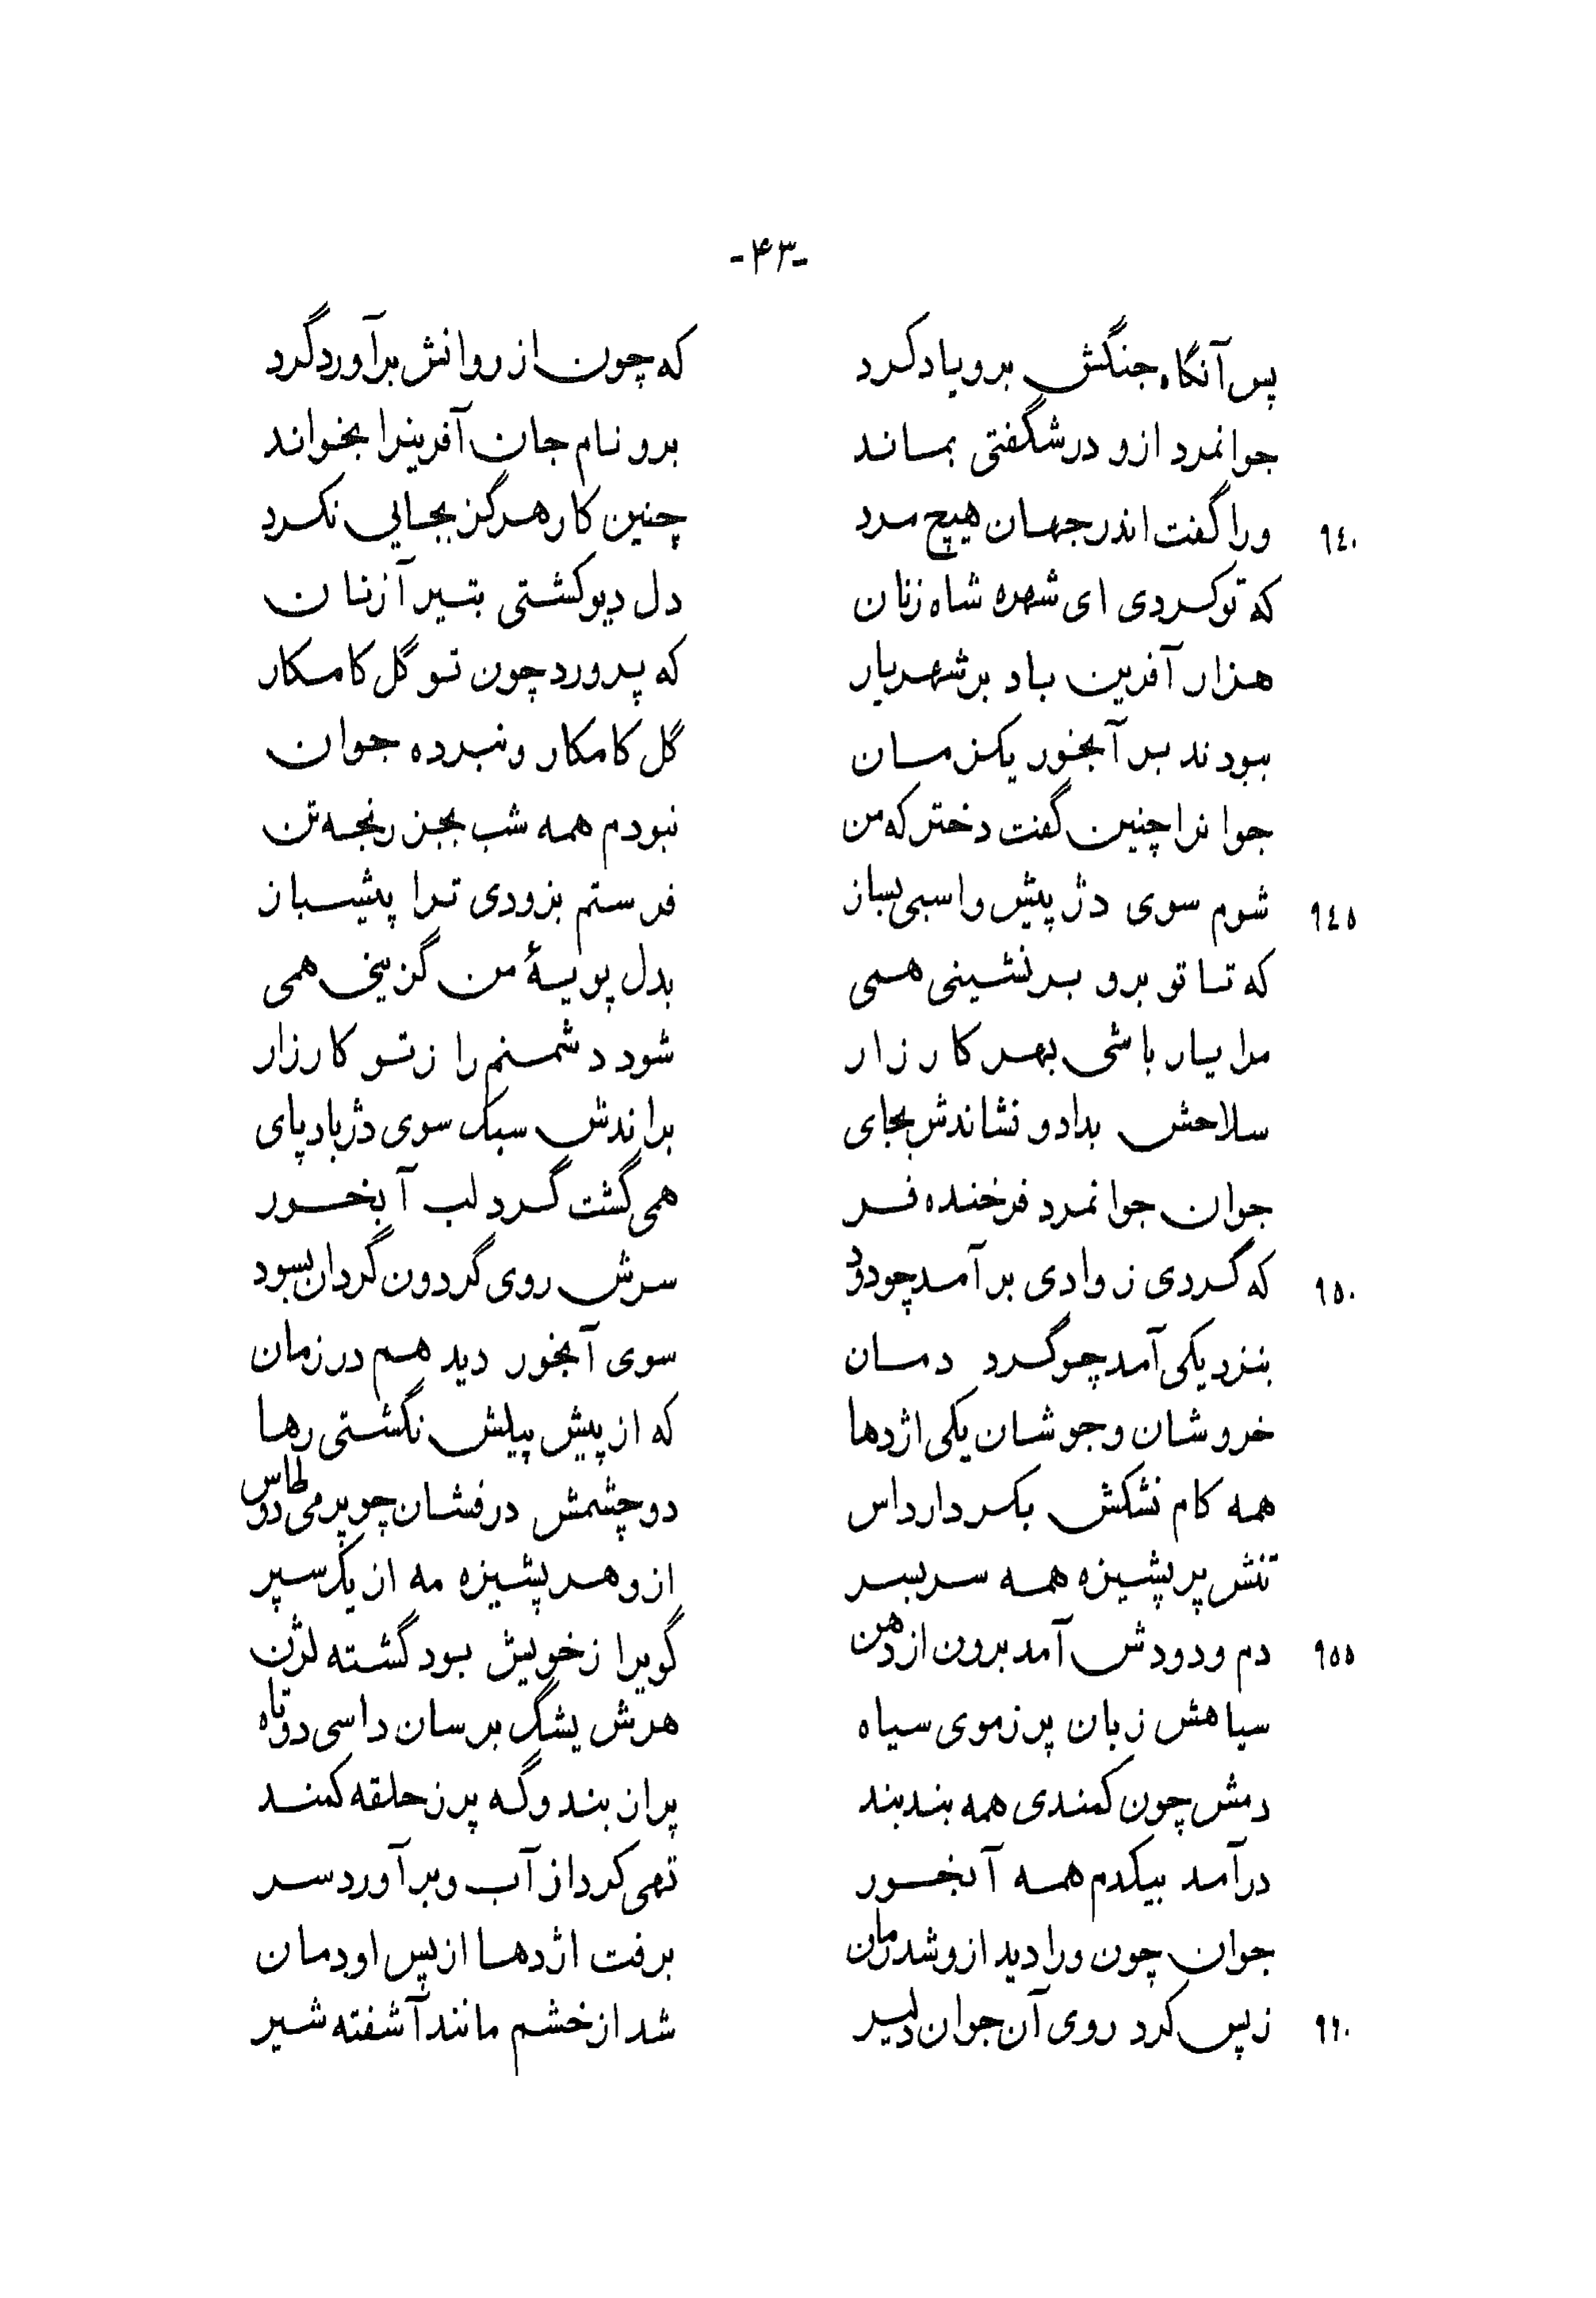 -۴۳-
پس آنگاه جنگش برو یاد کرد که چون از روانش برآورد گرد
جوانمرد ازو در شگفتی بماند برو نام جان آفرینرا بخواند
ورا گفت اندر جهان هیچ مرد چنین کار هرگز بجایی نکرد ٩٤٠
که تو کردی ای شهره شاه زنان دل دیو کشتی بتیر آزنان
هزار آفرین باد بر شهریار که پرورد چون تو گل کامکار
ببودند بر آبخور یکزمان گل کامکار و نبرده جوان
جوانرا چنین گفت دختر که من نبودم همه شب بجز رنجه تن
شوم سوی دژ پیش و اسبی بساز فرستم بزودی ترا پیشباز ٩٤٥
که تا تو برو بر نشینی همی بدل پویۀ من گزینی همی
مرا یار باشی بهر کارزار شود دشمنم را ز تو کارزار
سلاحش بداد و نشاندش بجای براندش سبک سوی دژ بادپای
جوان جوانمرد فرخنده فر همی گشت گرد لب آبخور
که گردی ز وادی برآمد چو دود سرش روی گردون گردان بسود ٩٥٠
بنزدیکی آمد چو گرد دمان سوی آبخور دید هم در زمان
خروشان و جوشان یکی اژدها که از پیش پیلش نگشتی رها
همه کام نشکش بکردار داس دو چشمش درفشان چو پر می دو طاس
تنش پر پشیزه همه سربسر ازو هر پشیزه مه از یک سپر
دم و دودش آمد برون از دهن گویرا ز خویش بود گشته لژن ٩٥٥
سیاهش زبان پر ز موی سیاه هرش یشگ برسان داسی دوتاه
دمش چون کمندی همه بند بند پران بند وگه پر ز حلقه کمند
درآمد بیکدم همه آبخور تهی کرد از آب و برآورد سر
جوان چون ورا دید ازو شد رمان برفت اژدها از پس او دمان
ز پس کرد روی آن جوان دلیر شد از خشم مانند آشفته شیر ٩٦٠